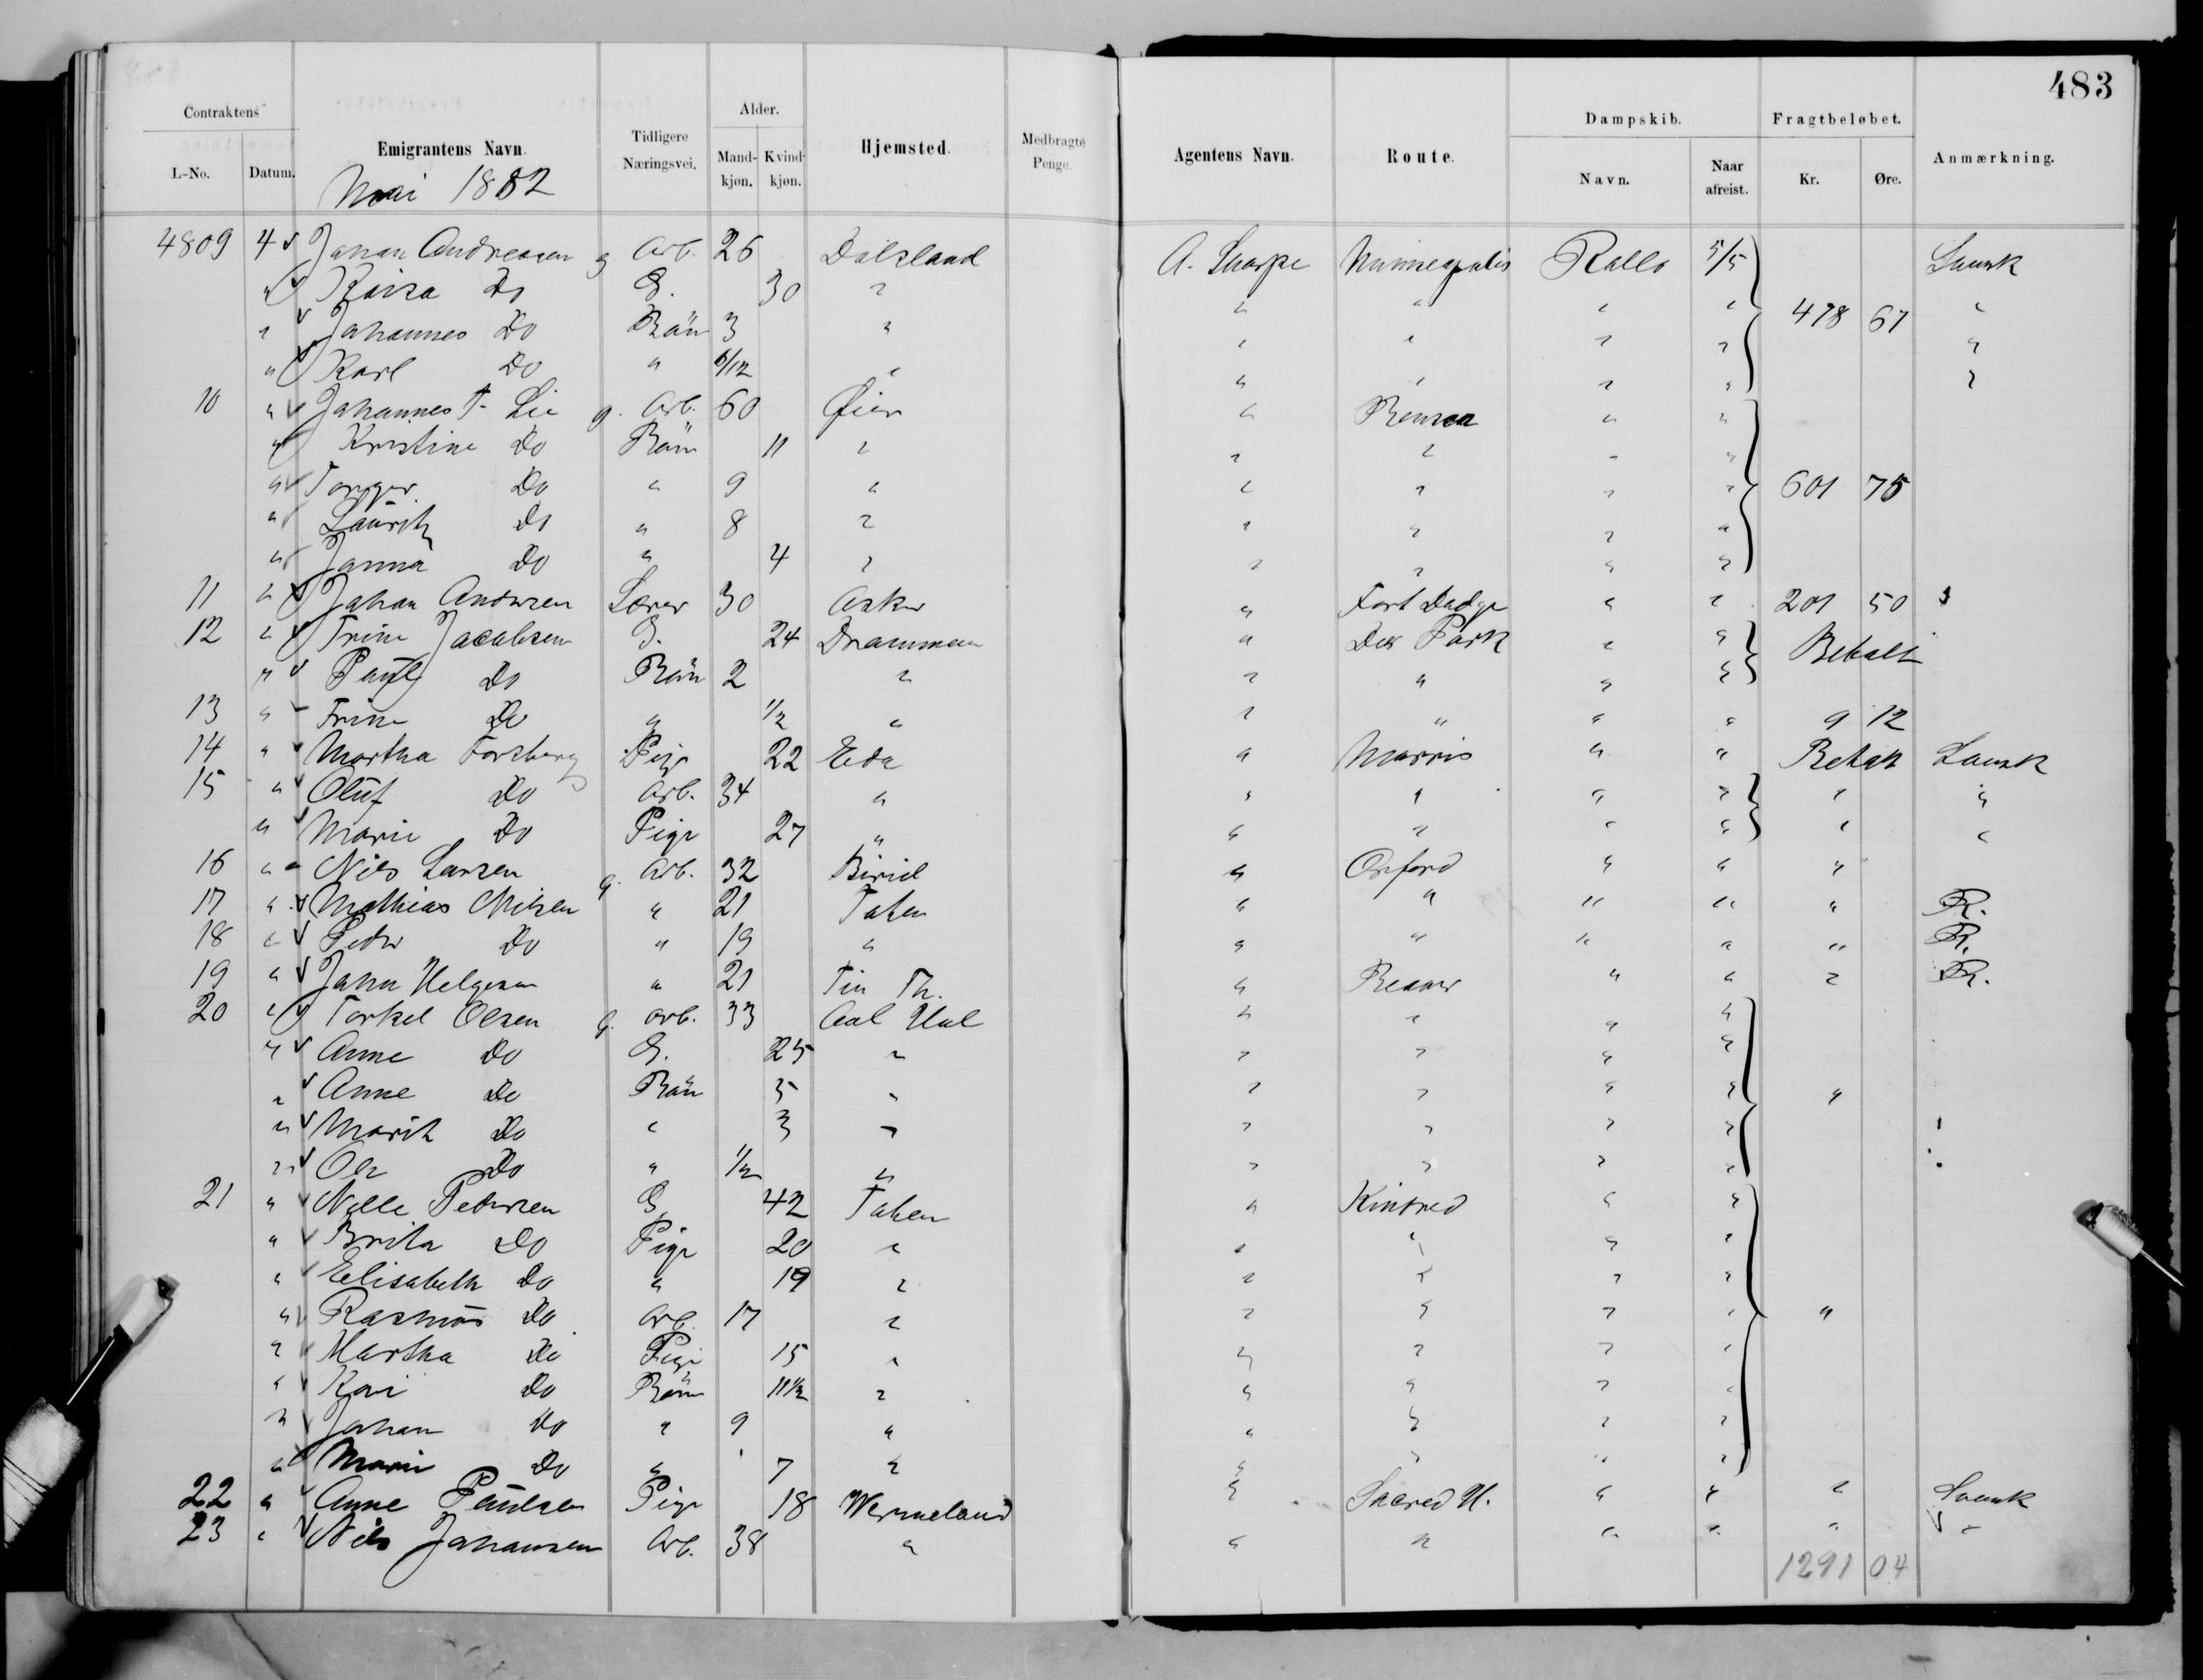 483
Contraktens Emigrantens Navn. Tidligere Næringsvei. Alder. Hjemsted. Medbragte Penge. Agentens Navn. Route. Dampskib. Fragtbeløbet. Anmærkning.
L-No. Datum. Mand-kjøn. Kvind-kjøn. Navn. Naar afreist. Kr. Øre.
Mai 1882
4809 4 Johan Andreasen g. Arb. 26 Dalsland A. Sharpe Minneapolis Rollo 5/5 Svensk
" Kaisa Do G. 30 " " " " " 478 67 "
" Johannes Do Barn 3 " " " " " "
" Karl Do " 6/12 " " " " " "
10 " Johannes T. Lie g. Arb. 60 Øier " Benson " "
" Kristine Do Barn 11 " " " " "
" Torger Do " 9 " " " " " 601 75
" Lauritz Do " 8 " " " " "
" Janna Do " 4 " " " " "
11 " Johan Andersen Lærer 30 Asker " Fort Dodge " " 201 50
12 " Trine Jacobsen G. 24 Drammen " Deer Park " " Betalt
" Paul Do Barn 2 " " " " "
13 " Trine Do " 1/2 " " " " " 9 12
14 " Martha Forsberg Pige 22 Eda " Morris " " Betalt Svensk
15 " Oluf Do Arb. 34 " " " " " " "
" Marie Do Pige 27 " " " " " " "
16 " Nils Larsen g. Arb. 32 Birid " Oxford " " "
17 " Mathias Nilsen " 21 Toten " " " " " R.
18 " Peder Do " 19 " " " " " " R.
19 " John Helgesen " 21 Tin Th. " Beaver " " " R.
20 " Torkel Olsen g. Arb. 33 Aal Hal " " " "
" Anne Do G. 25 " " " " "
" Anne Do Barn 5 " " " " " "
" Marit Do " 3 " " " " "
" Ole Do " 1/2 " " " " "
21 " Nelle Pedersen G. 42 Toten " Kindred " "
" Brita Do Pige 20 " " " " "
" Elisabeth Do " 19 " " " " "
" Rasmus Do Arb. 17 " " " " " "
" Martha Do Pige 15 " " " " "
" Kari Do Barn 11 1/2 " " " " "
" Johan Do " 9 " " " " "
" Marie Do " 7 " " " " "
22 " Anne Paulsen Pige 18 Wermeland " Sacred H. " " " Svensk
23 " Nils Johansen Arb. 38 " " " " " " "
1291 04